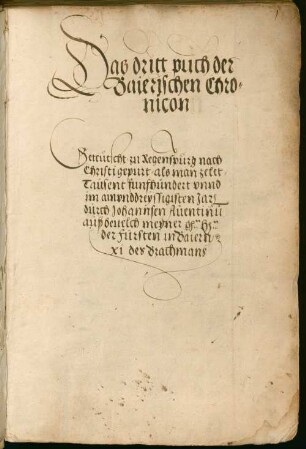 Das dritt puch der
Baierischen Chro-
nicon
Geteutscht zu Regenspurg nach
Christi gepurt als man zellt
Tausent funfhundert vnnd
im ainvnddreyssigisten Jar
durch Johannsen Auentinu
aus beuelch meyner gn
der Fürsten in Baiern
xi des Brachmans